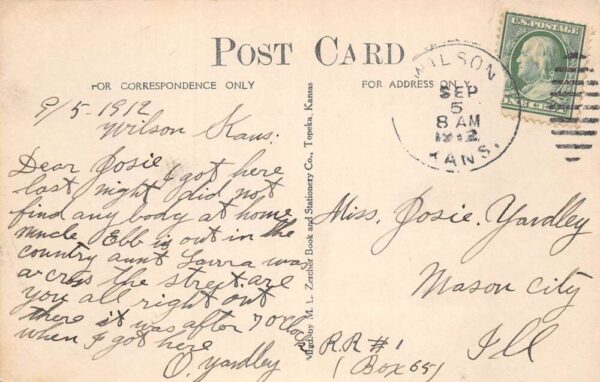 POST CARD
FOR CORRESPONDENCE ONLY
FOR ADDRESS ONLY
9/5-1912
Wilson Kans.
Dear Josie
I got here
last night did not
find any body at home
uncle Ebb is out in the
country aunt Laura was
across the street. are
you all right out
there it was after 7 oclock
when I got here
O. Yardley
Mfgd by M. L. Zercher Book and Stationery Co., Topeka, Kansas
WILSON
SEP
5
8 AM
1912
KANS.
U.S. POSTAGE
ONE CENT
Miss. Josie. Yardley
Mason City
R.R #1
Ill
(Box 65)